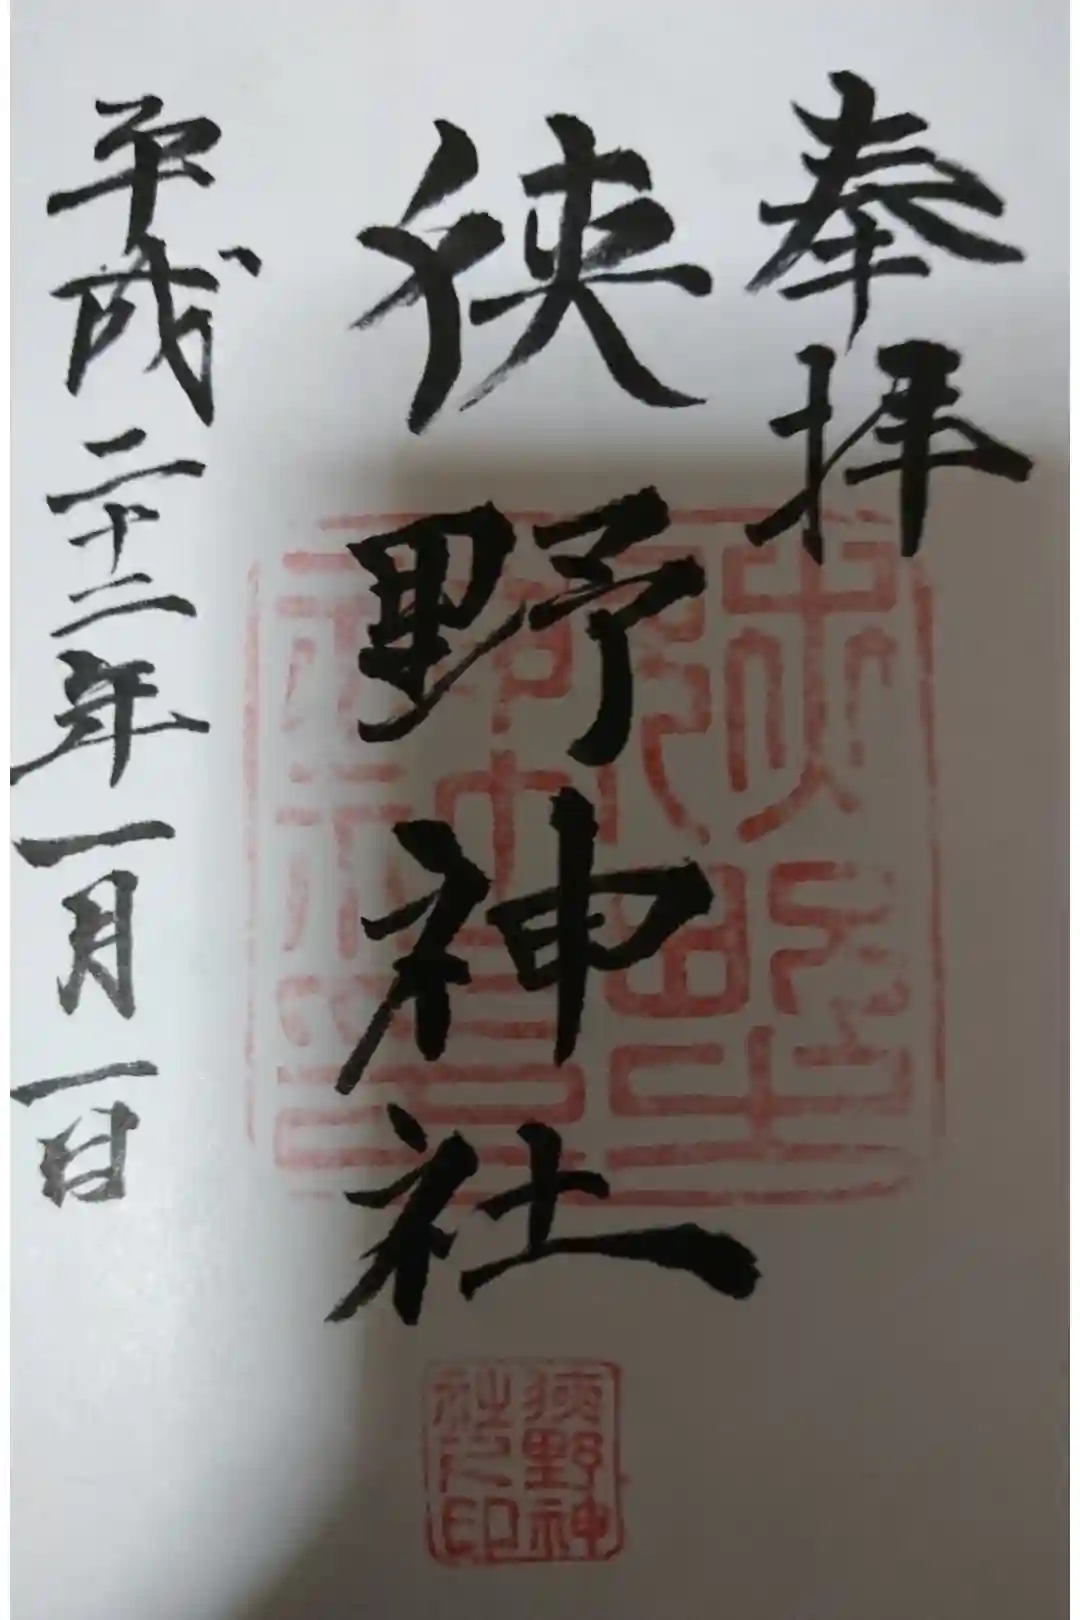 奉拝
狭野神社
平成二十二年一月一日
狹野神
社之印